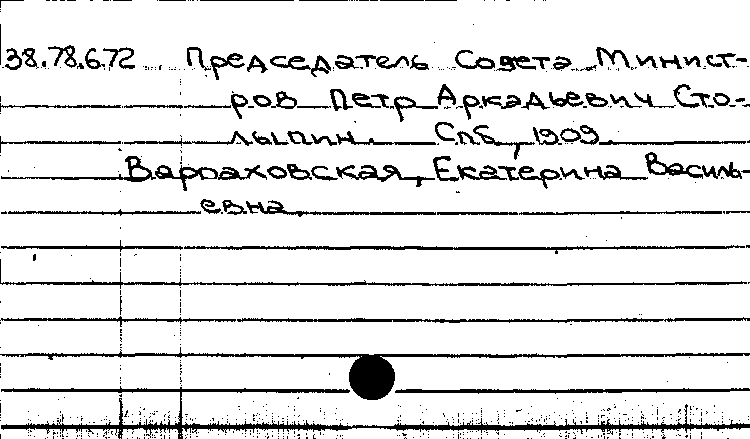 38.78.672 Председатель Совета Минист-
ров Петр Аркадьевич Сто-
лыпин. Спб, 1909.
Варпаховская, Екатерина Василь-
евна.